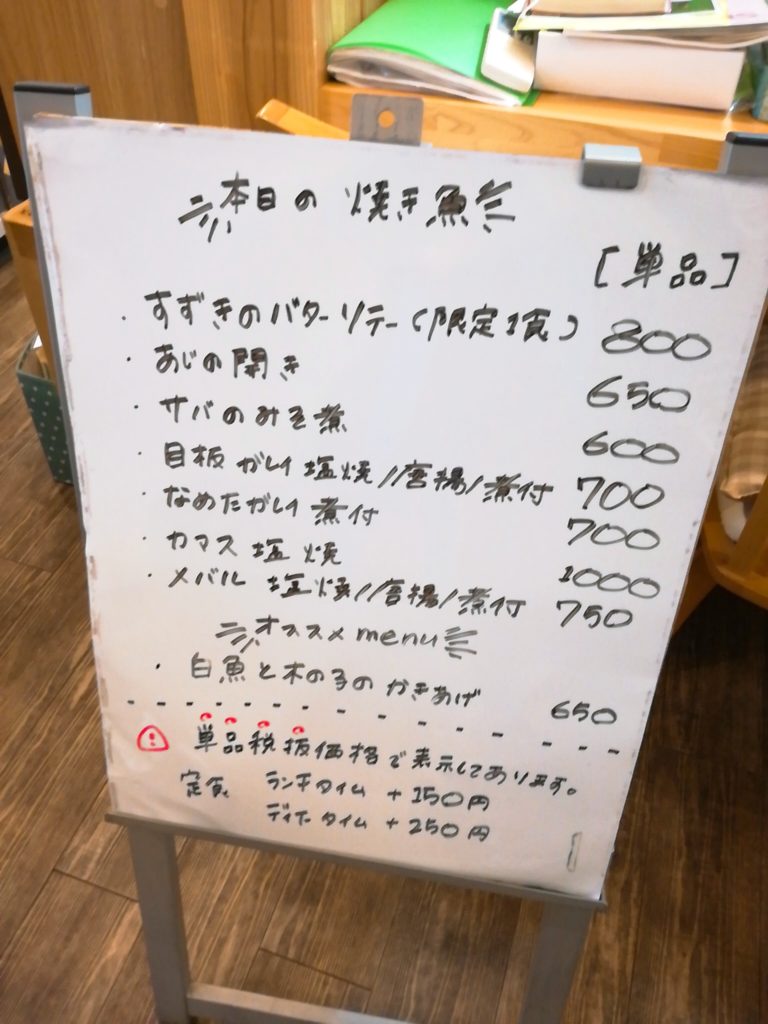 本日の焼き魚
[単品]
・すずきのバターソテー(限定1食) 800
・あじの開き 650
・サバのみそ煮 600
・目板がレイ 塩焼/唐揚/煮付 700
・なめたがレイ 煮付 700
・カマス 塩焼 1000
・メバル 塩焼/唐揚/煮付 750
オススメmenu
・白魚と木の子のかきあげ 650
単品税抜価格で表示してあります。
定食 ランチタイム +150円
ディナータイム +250円